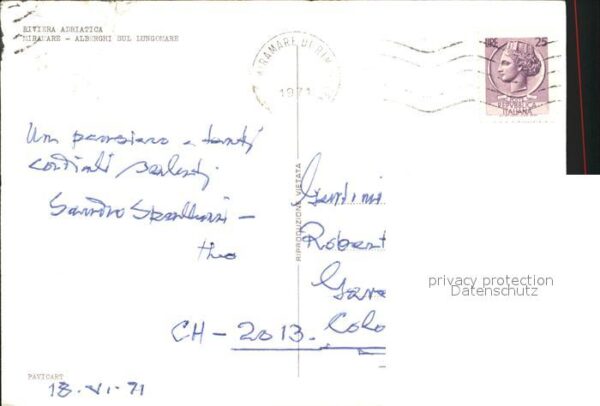 RIVIERA ADRIATICA
MIRAMARE - ALBERGHI SUL LUNGOMARE
MIRAMARE DI RIM
1971
LIRE 25
REPVBBLICA
ITALIANA
Un pensiero e tanti
cordiali saluti
Sandro
RIPRODUZIONE VIETATA
Robert
CH - 2013. Colo
privacy protection
Datenschutz
PAVICART
18-VI-71